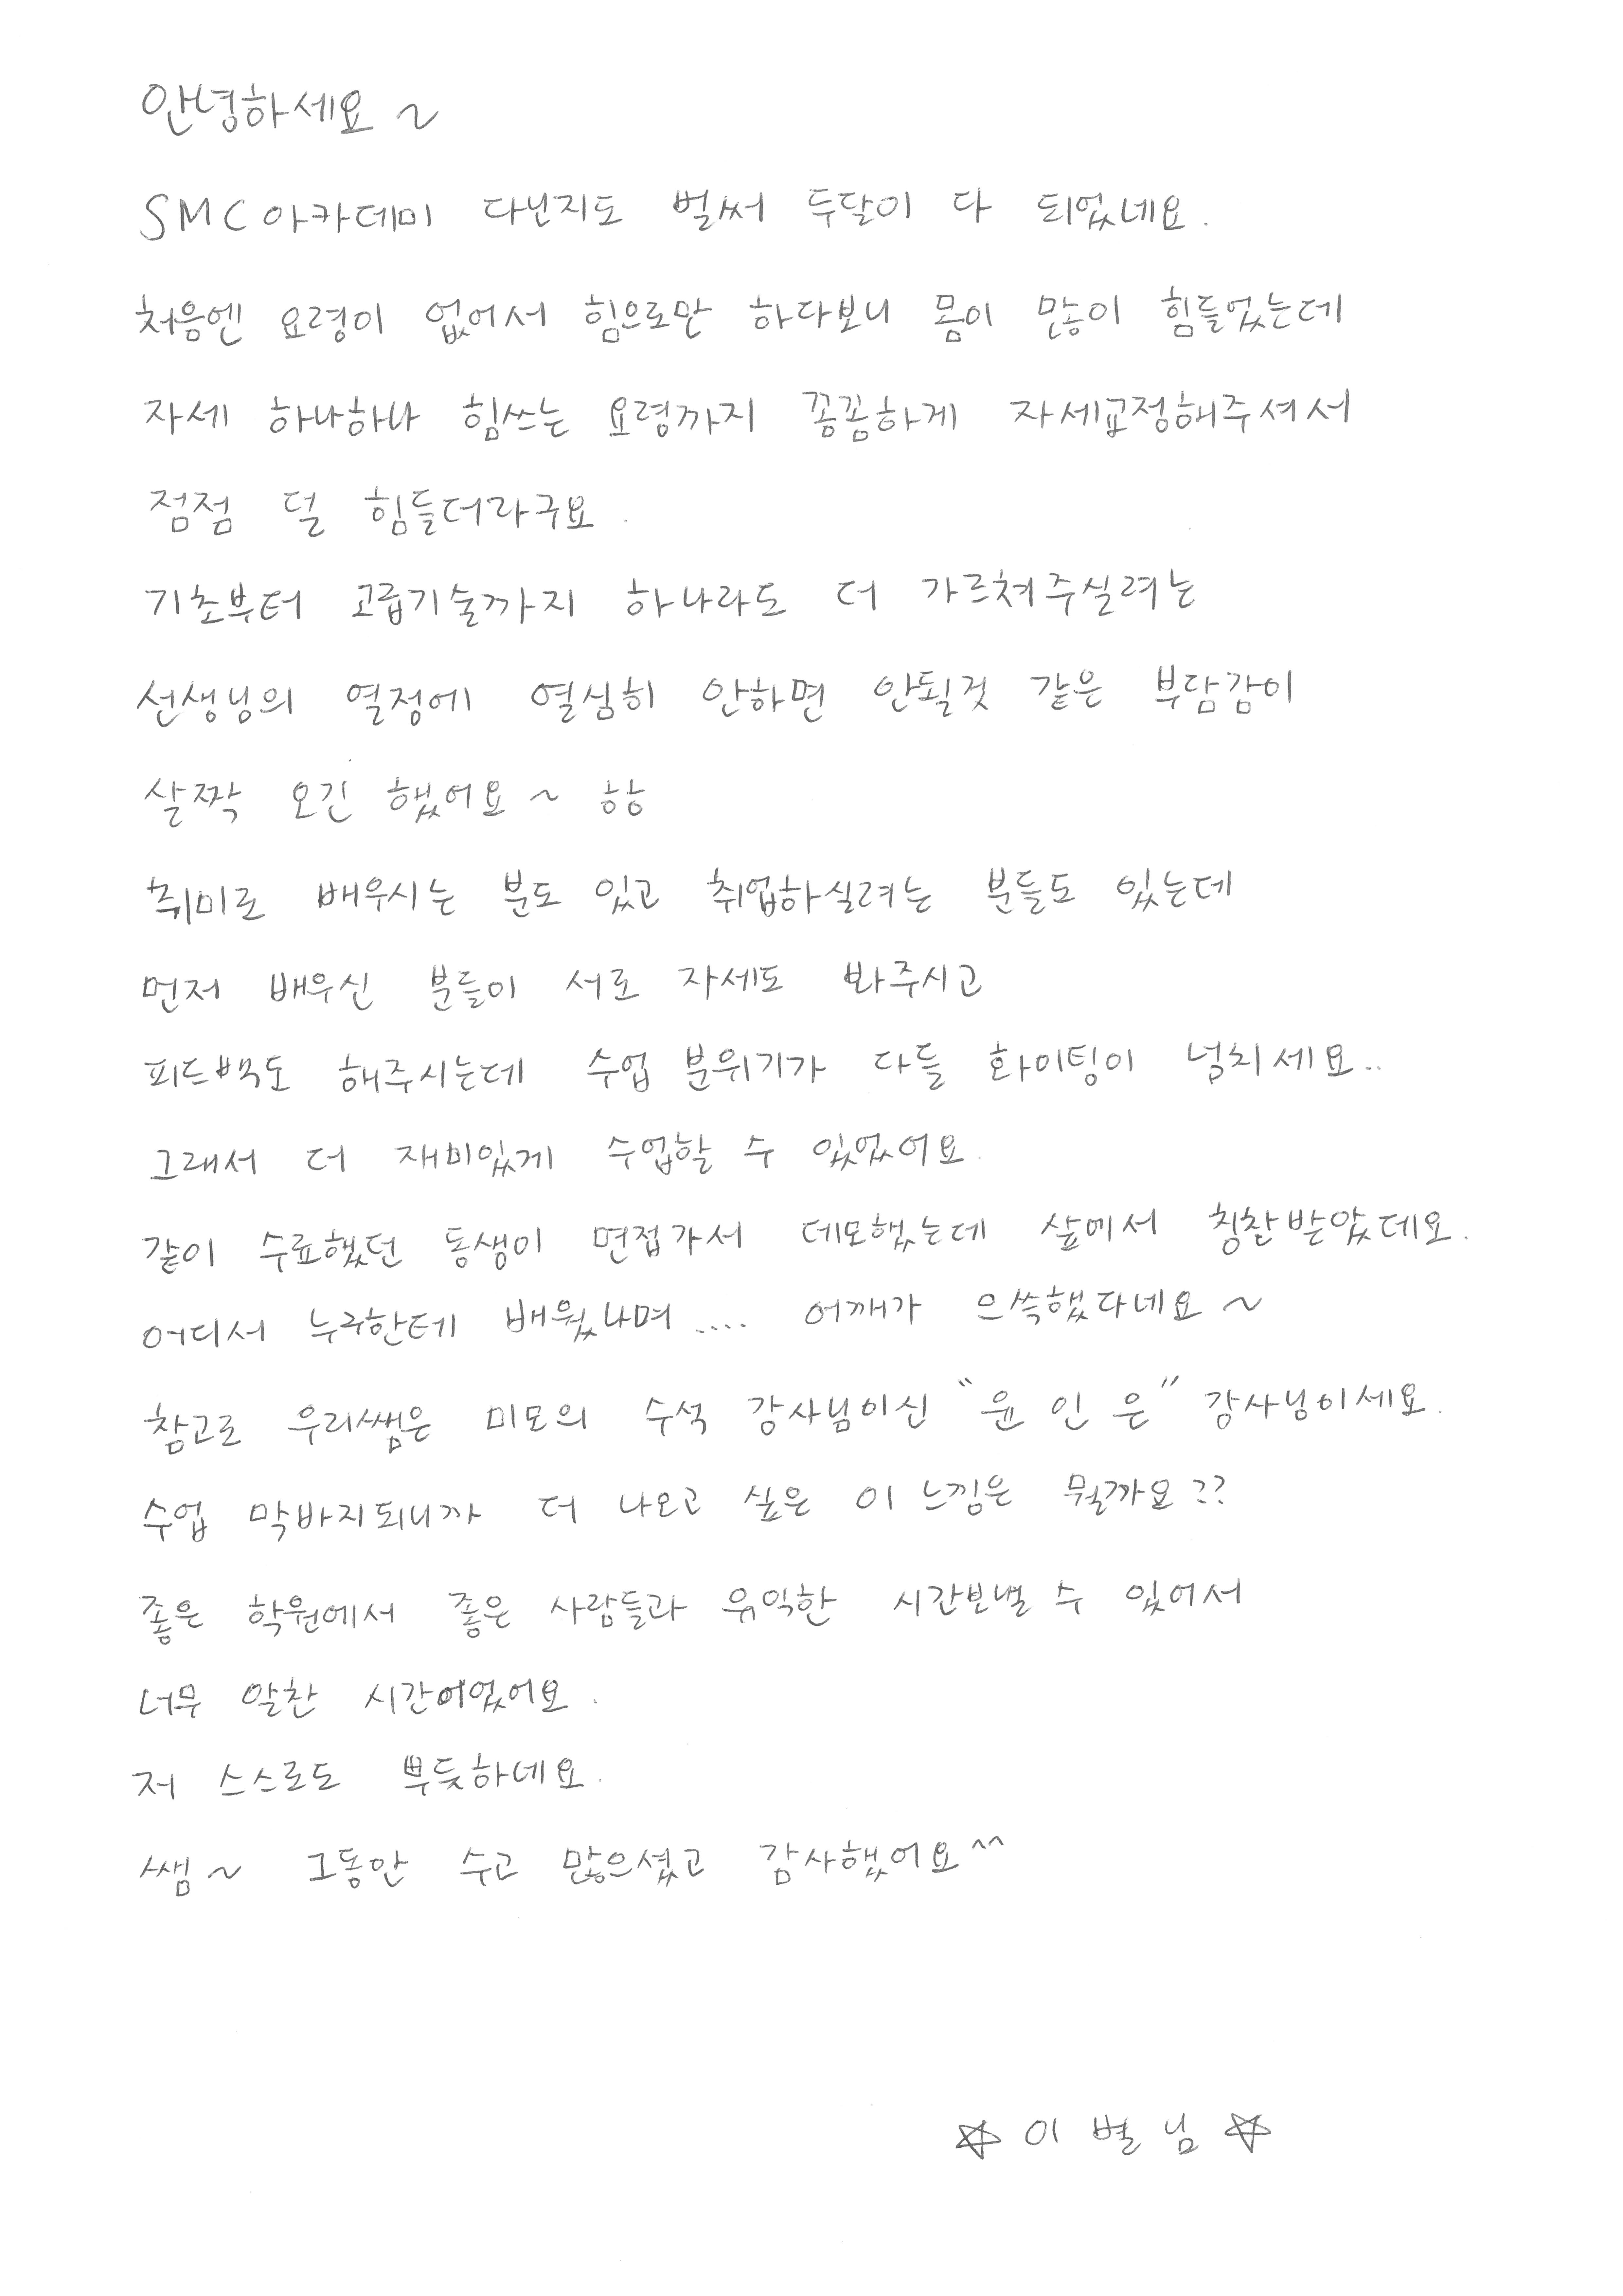 안녕하세요~
SMC아카데미 다닌지도 벌써 두달이 다 되었네요.
처음엔 요령이 없어서 힘으로만 하다보니 몸이 많이 힘들었는데
자세 하나하나 힘쓰는 요령까지 꼼꼼하게 자세교정해주셔서
점점 덜 힘들더라구요.
기초부터 고급기술까지 하나라도 더 가르쳐주실려는
선생님의 열정에 열심히 안하면 안될것 같은 부담감이
살짝 오긴 했어요~ ㅎㅎ
취미로 배우시는 분도 있고 취업하실려는 분들도 있는데
먼저 배우신 분들이 서로 자세도 봐주시고
피드백도 해주시는데 수업 분위기가 다들 화이팅이 넘치세요..
그래서 더 재미있게 수업할 수 있었어요.
같이 수료했던 동생이 면접가서 데모했는데 샾에서 칭찬받았데요.
어디서 누구한테 배웠냐며.... 어깨가 으쓱했다네요~
참고로 우리쌤은 미모의 수석 강사님이신 "윤 인 은" 강사님이세요.
수업 막바지되니까 더 나오고 싶은 이 느낌은 뭘까요??
좋은 학원에서 좋은 사람들과 유익한 시간보낼 수 있어서
너무 알찬 시간이었어요.
저 스스로도 뿌듯하네요.
쌤~ 그동안 수고 많으셨고 감사했어요^^
☆ 이 별 님 ☆